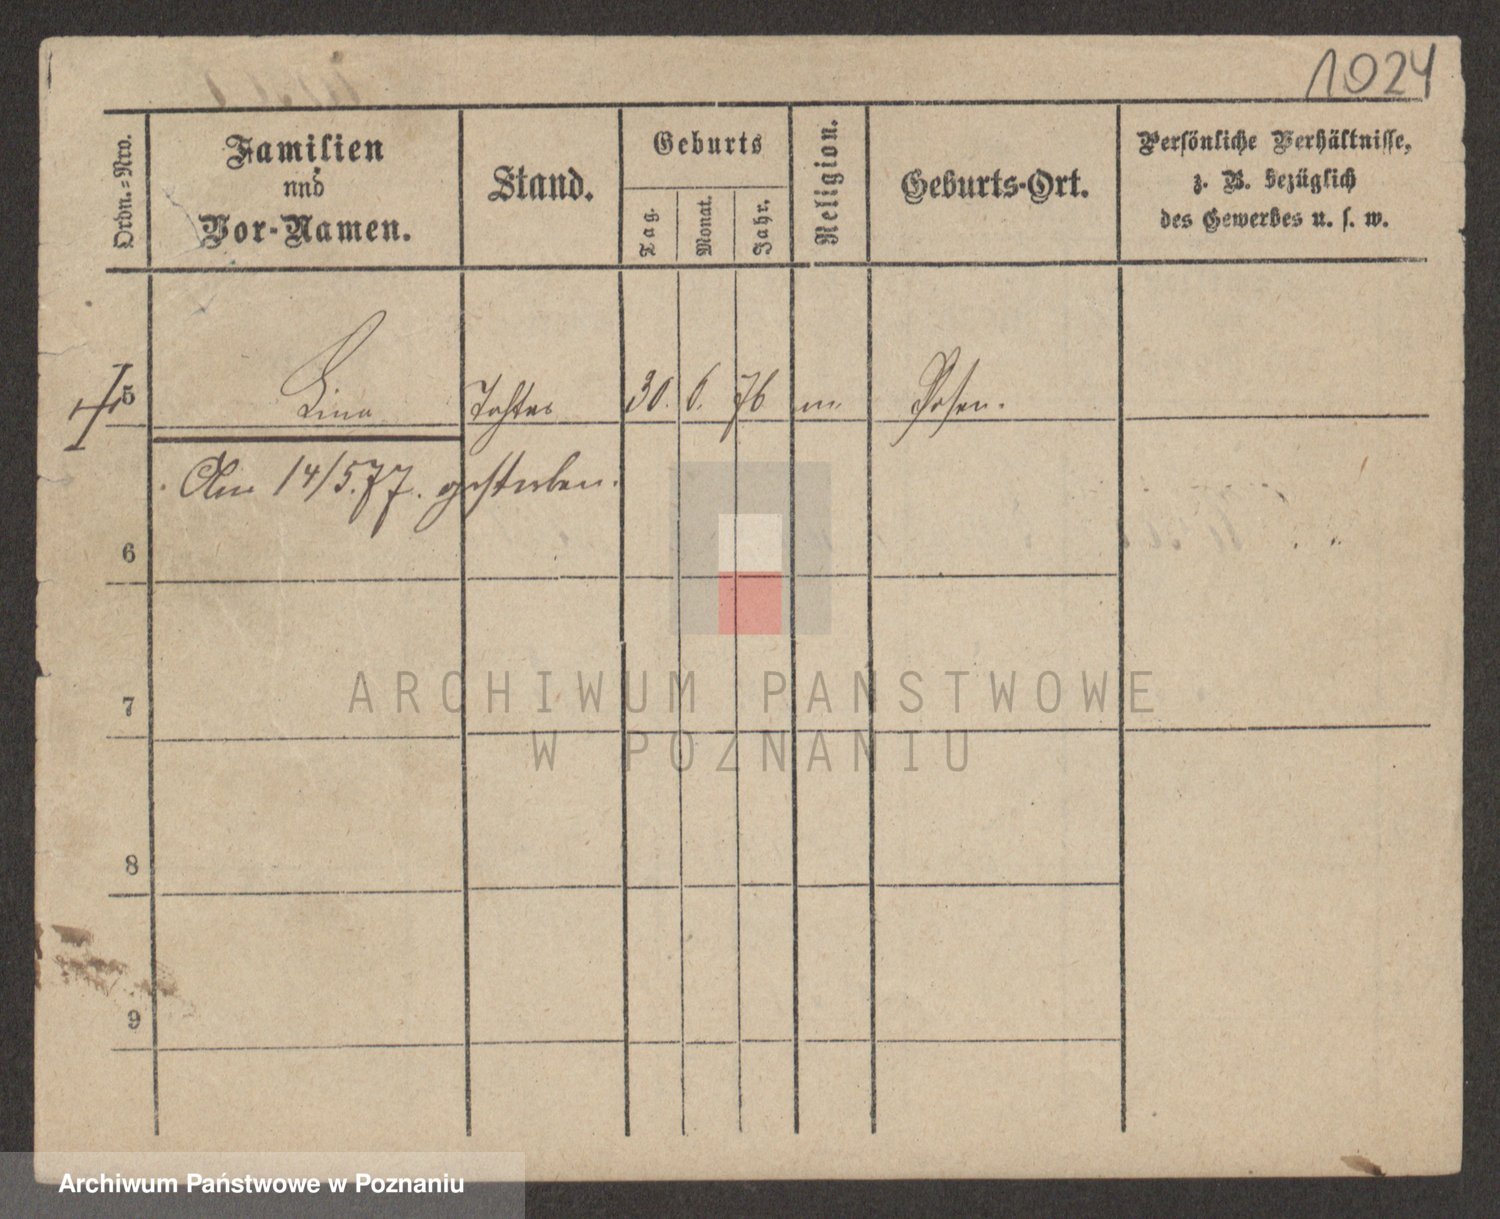 1024
Ordn.=Nro.
Familien
nnd
Vor-Namen.
Stand.
Geburts
Tag.
Monat.
Jahr.
Religion.
Geburts-Ort.
Persönliche Verhältnisse,
z. B. bezüglich
des Gewerbes u. s. w.
5 Lina Tochter 30. 6. 76 m. Posen.
Am 14/5.77. gestorben.
6
7
8
9
ARCHIWUM PAŃSTWOWE
W POZNANIU
Archiwum Państwowe w Poznaniu